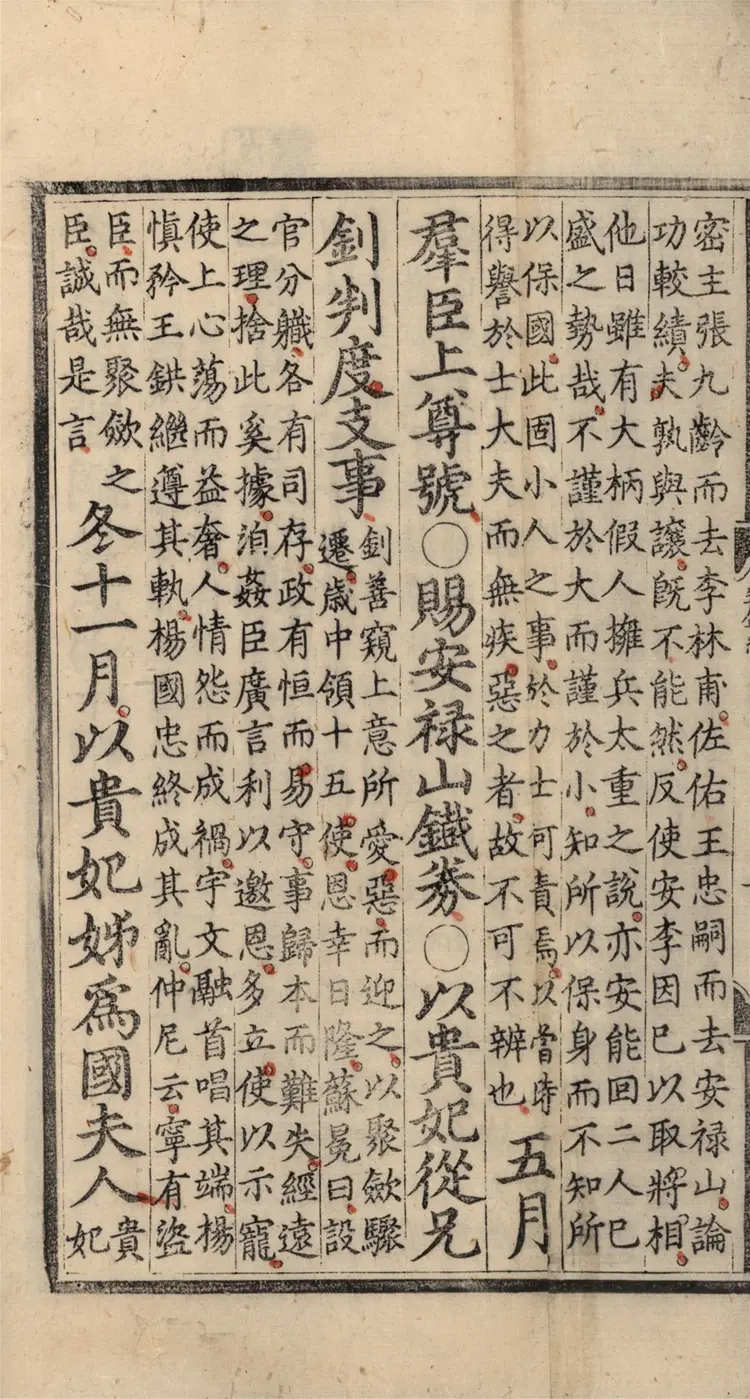 密主張九齡而去李林甫佐佑王忠嗣而去安祿山論
功較績夫孰與讓旣不能然反使安李因已以取將相
他日雖有大柄假人擁兵太重之說亦安能回二人已
盛之勢哉不謹於大而謹於小知所以保身而不知所
以保國此固小人之事於力士可責焉以當時
得譽於士大夫而無疾惡之者故不可不辨也
五月
羣臣上尊號○賜安禄山鐵券○以貴妃從兄
釗判度支事
釗善窺上意所愛惡而迎之以聚斂驟
遷歲中領十五使恩幸日隆蘇冕曰設
官分職各有司存政有恒而易守事歸本而難失經遠
之理捨此奚據洎姦臣廣言利以邀恩多立使以示寵
使上心蕩而益奢人情怨而成禍宇文融首唱其端楊
慎矜王鉷繼遵其軌楊國忠終成其亂仲尼云寧有盜
臣而無聚斂之
臣誠哉是言
冬十一月以貴妃姊爲國夫人
貴
妃